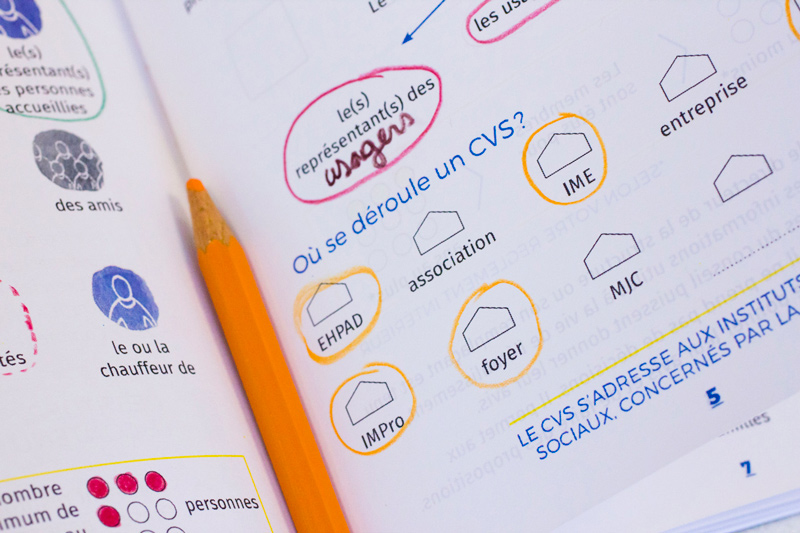 le(s)
représentant(s)
s personnes
accueillies
des amis
tés
le ou la
chauffeur de
ombre
imum de
personnes
les
le(s)
représentant(s) des
usagers
Où se déroule un CVS?
entreprise
IME
association
MJC
EHPAD
foyer
IMPro
LE CVS S'ADRESSE AUX INSTITUTS
SOCIAUX, CONCERNÉS PAR LA
5
7